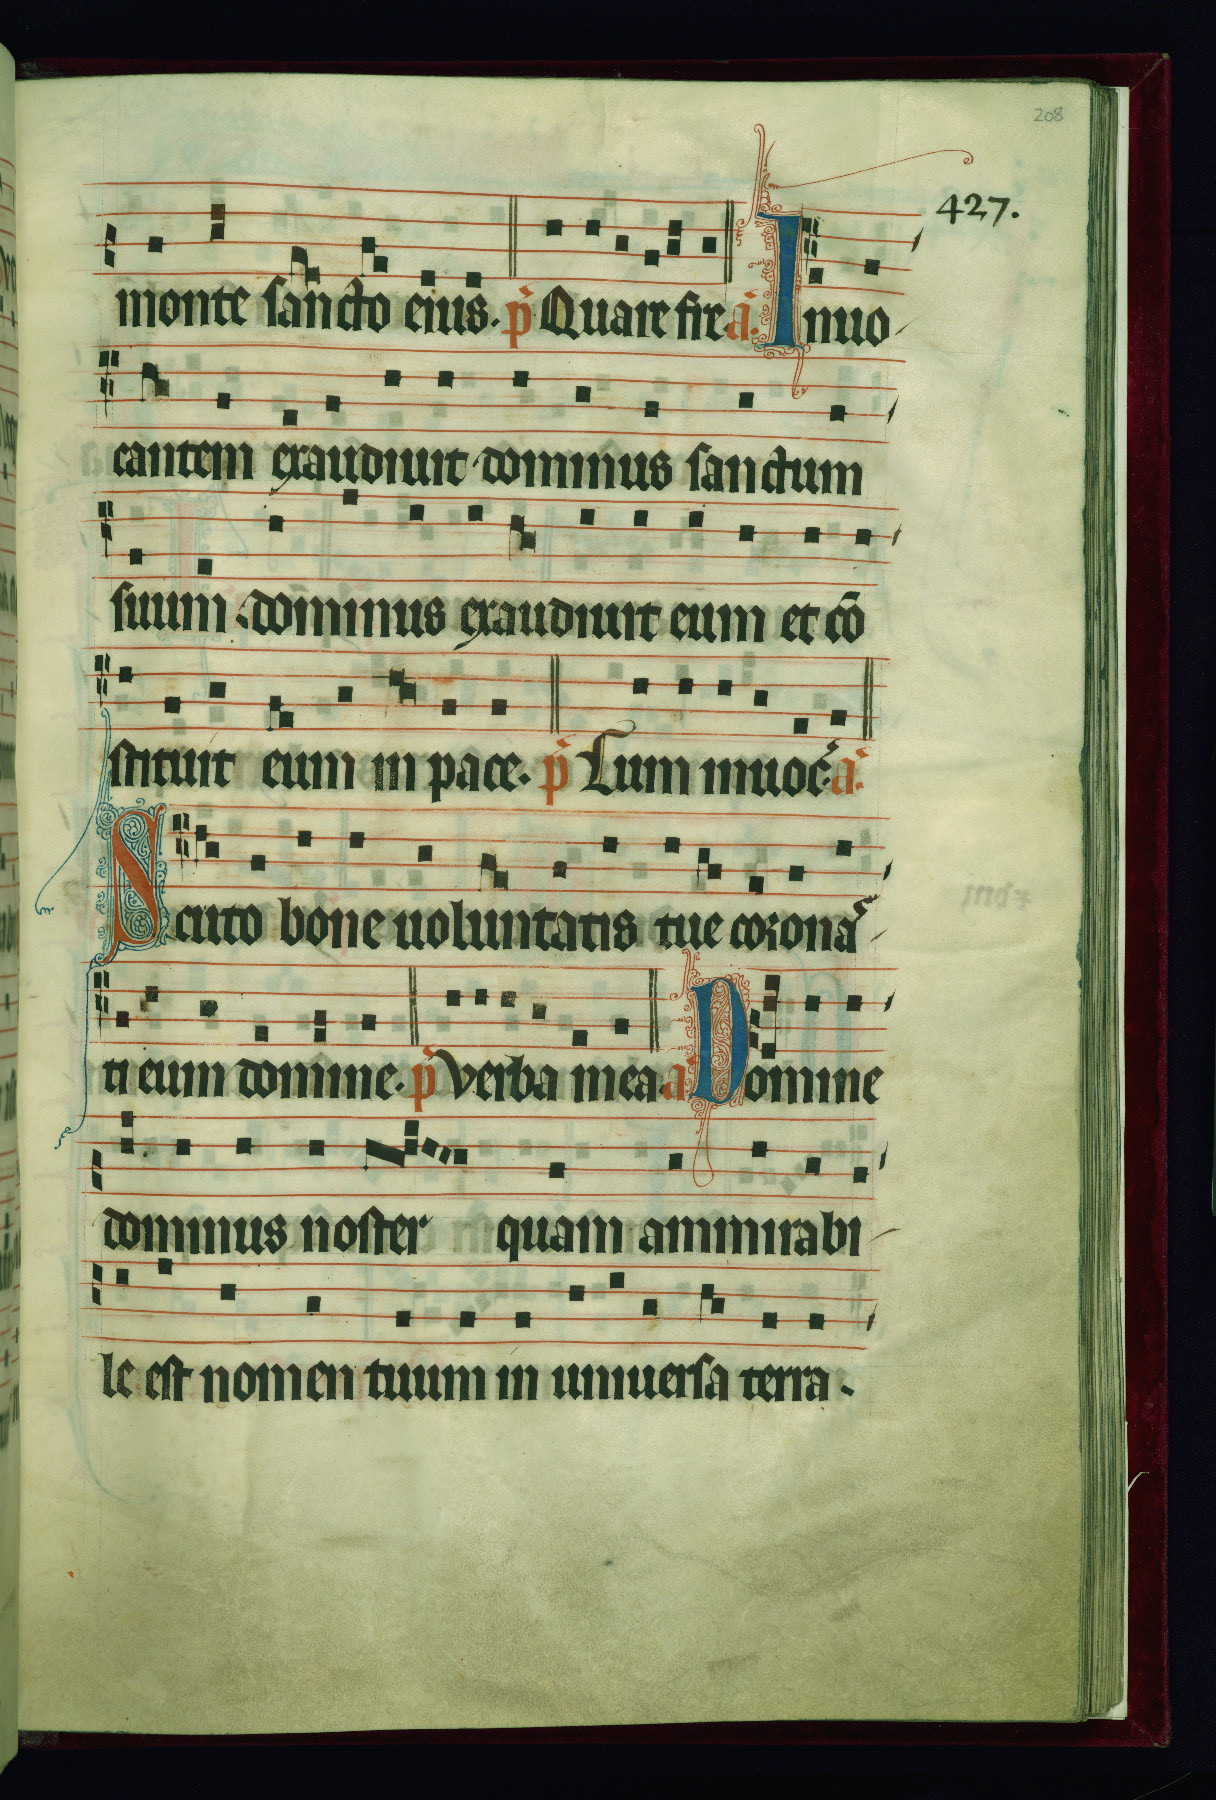 208
427.
monte sancto eius. p̄ Quare fre ā. Inuo
cantem exaudiuit dominus sanctum
suum. dominus exaudiuit eum et cō
stituit eum in pace. p̄ Cum inuoc̄. ā.
Scuto bone uoluntatis tue coronā
ti eum domine. p̄ Verba mea. a Domine
dominus noster quam ammirabi
le est nomen tuum in uniuersa terra.